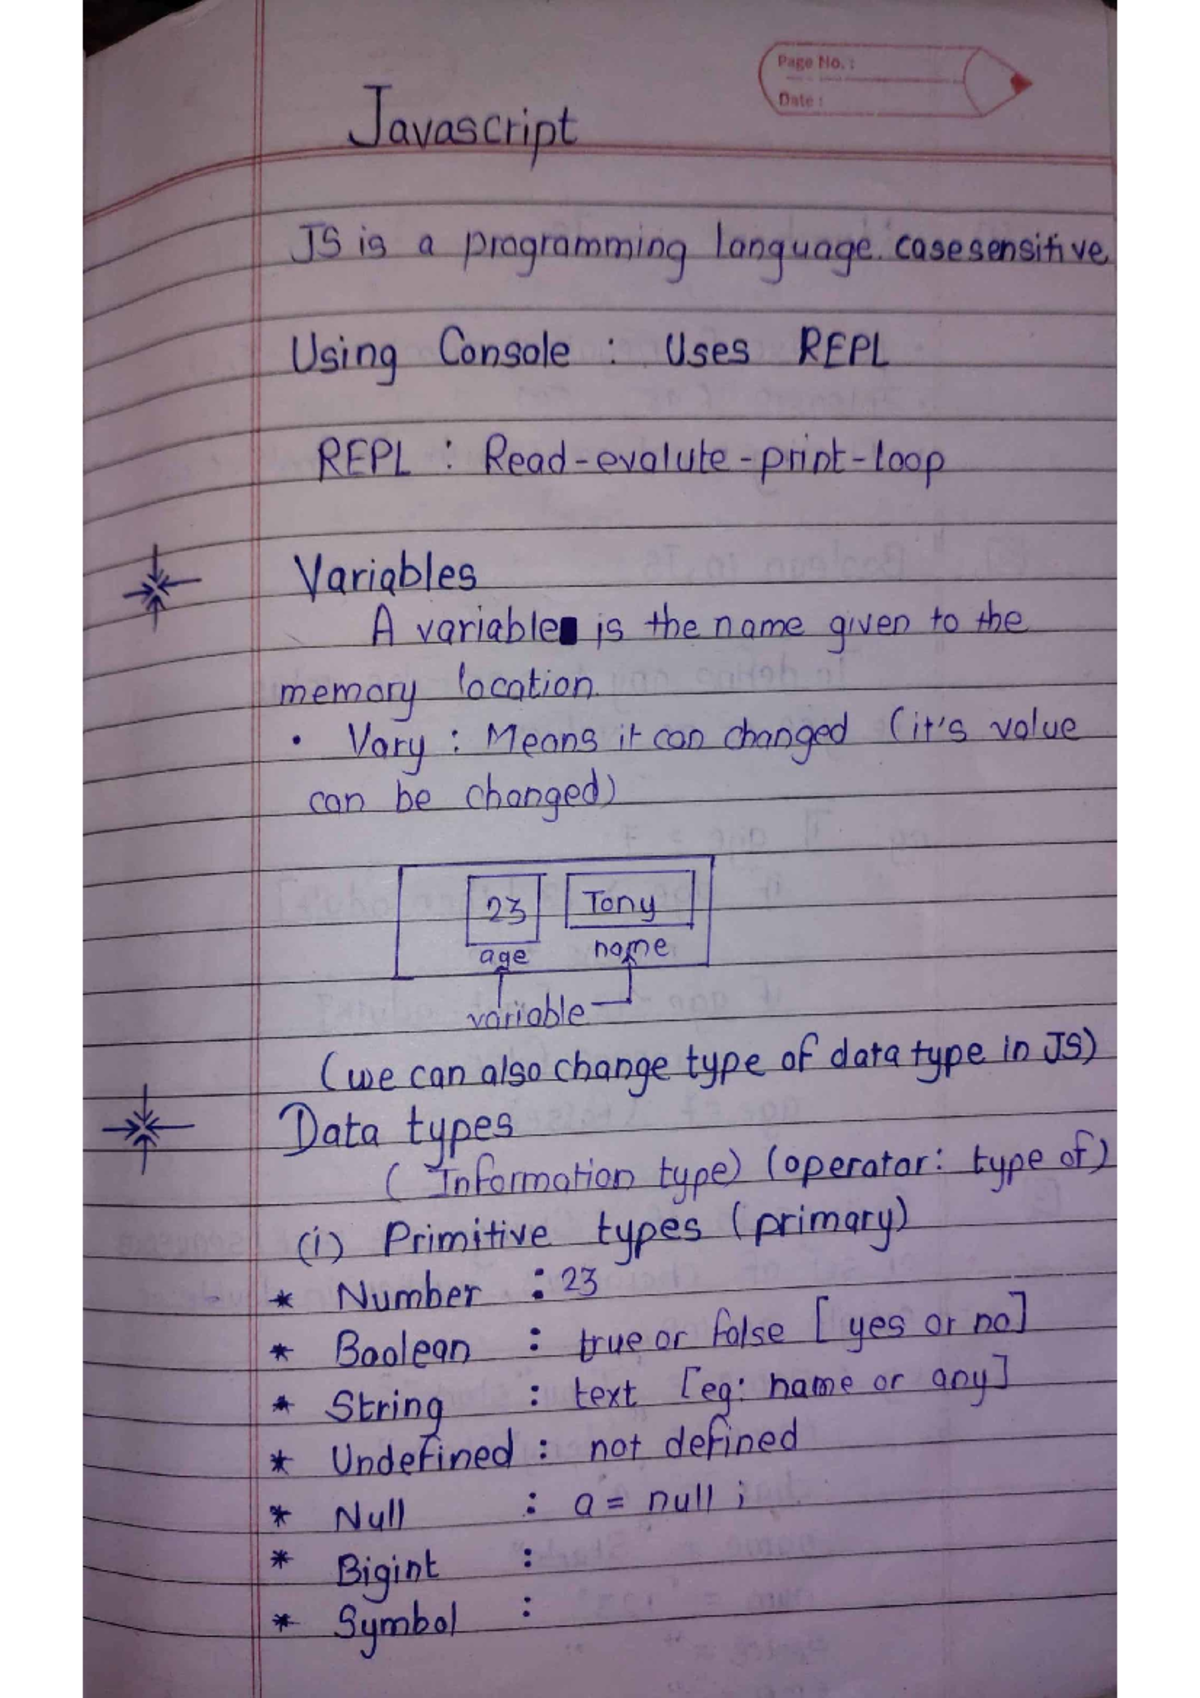 Page No. :
Date :
Javascript
JS is a programming language. casesensitive
Using Console : Uses REPL
REPL : Read-evalute-print-loop
Variables
A variable is the name given to the
memory location.
• Vary : Means it can changed (it's value
can be changed)
23 Tony
age name
variable
(we can also change type of data type in JS)
Data types
(Information type) (operator: type of)
(i) Primitive types (primary)
* Number : 23
* Boolean : true or false [yes or no]
* String : text [eg: name or any]
* Undefined : not defined
* Null : a = null ;
* Bigint :
* Symbol :